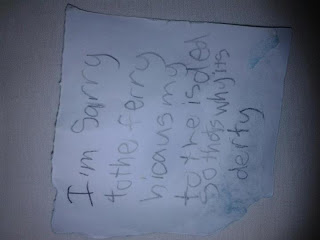 I'm Sarry
tothe ferry
hicaus my
to the isded
so thats why its
derty